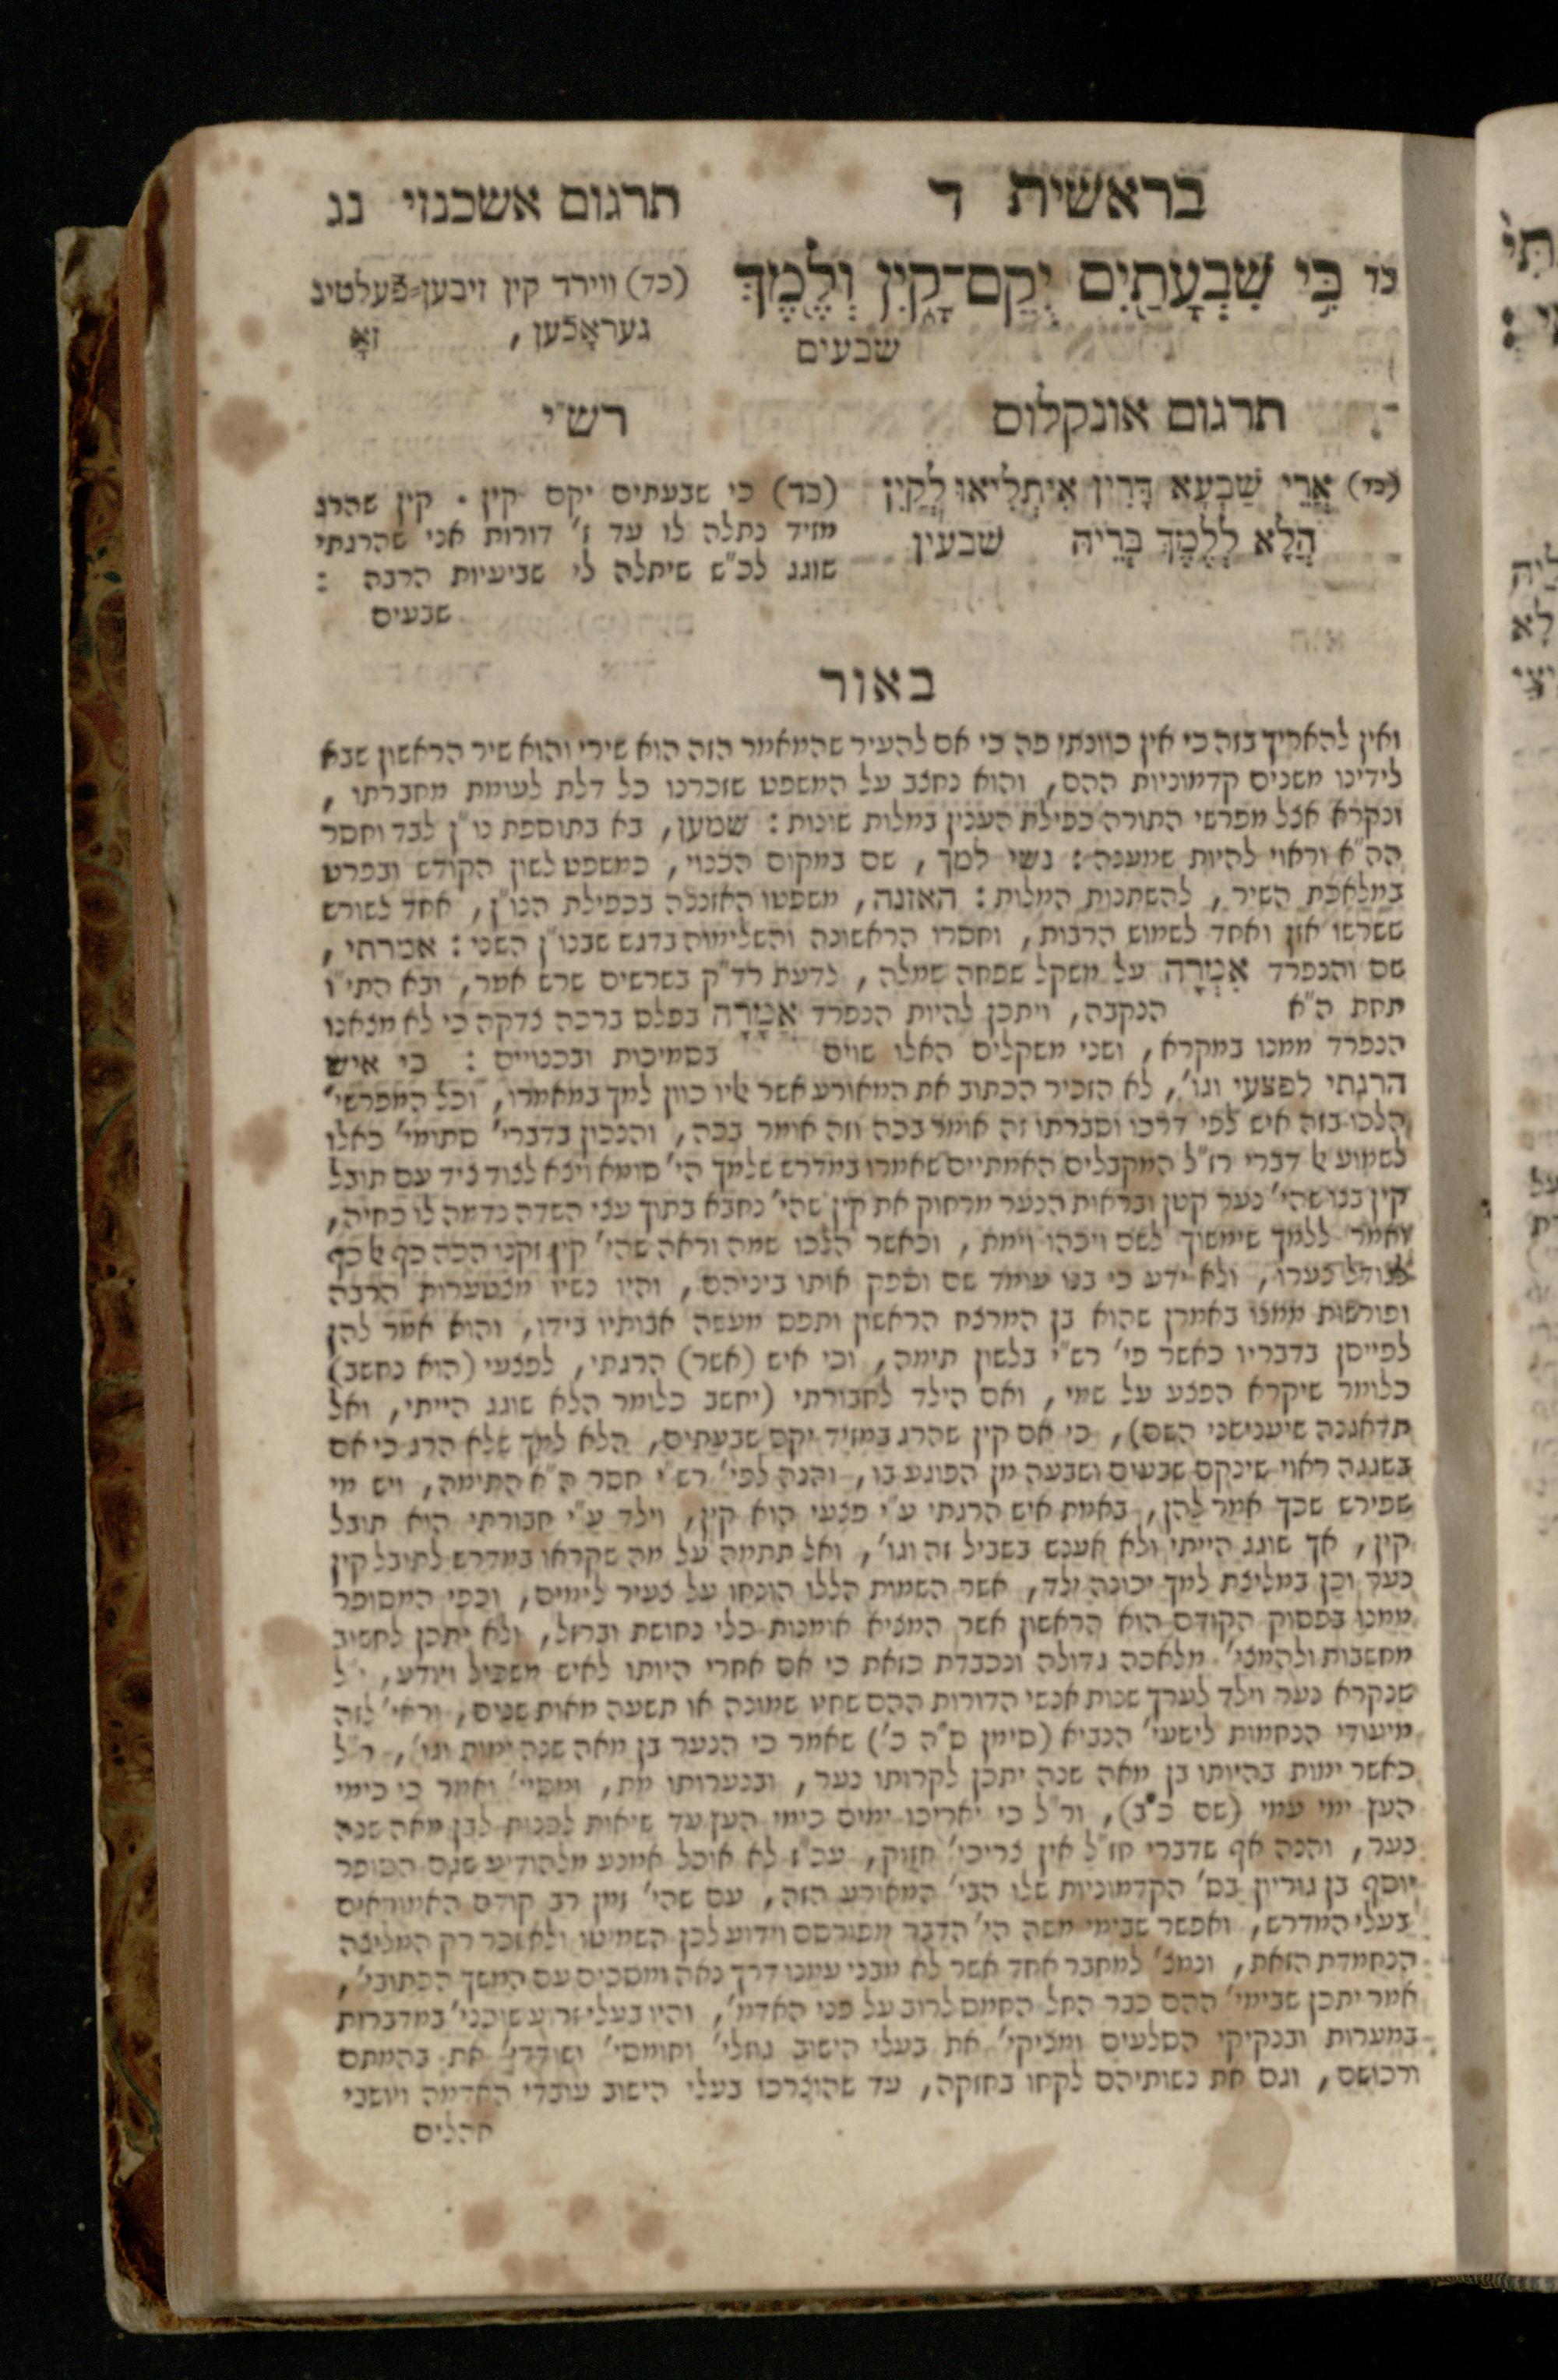 בראשית ד
תרגום אשכנזי נג
כד כִּי שִׁבְעָתַיִם יֻקַּם־קָיִן וְלֶמֶךְ
שבעים
(כד) ווירד קין זיבען=פֿעלטיג
געראָכֿען, זאָ
תרגום אונקלוס
(כד) אֲרֵי שַׁבְעָא דָרִין אִיתְלִיאוּ לְקַיִן
הֲלָא לְלֶמֶךְ בְּרֵיהּ שבעין
רש״י
(כד) כי שבעתים יקם קין. קין שהרג
מזיד נתלה לו עד ז׳ דורות אני שהרגתי
שוגג לכ״ש שיתלה לי שביעיות הרבה :
שבעים
באור
ואין להאריך בזה כי אין כוונתי פה כי אם להעיר שהמאמר הזה הוא שירי והוא שיר הראשון שבא
לידינו משנים קדמוניות ההם, והוא נחצב על המשפט שזכרנו כל דלת לעומת מחברתו,
ונקרא אצל מפרשי התורה כפילת הענין במלות שונות: שמען, בא בתוספת נו״ן לבד וחסר
הה״א וראוי להיות שמענה: נשי למך, שם במקום הכנוי, כמשפט לשון הקודש ובפרט
במלאכת השיר, להשתנות המלות: האזנה, משפטו האזננה בכפילת הנו״ן, אחד לשורש
ששרשו אזן ואחד לשמוש הרבות, וחסרו הראשונה והשלימוה בדגש שבנו״ן השני: אמרתי,
שם והנפרד אִמְרָה על משקל שפחה שמלה, לדעת רד״ק בשרשים שרש אמר, ובא התי״ו
תחת ה״א הנקבה, ויתכן להיות הנפרד אֲמָרָה בפלס ברכה צדקה כי לא מצאנו
הנפרד ממנו במקרא, ושני משקלים האלו שוים בסמיכות ובכנויים: כי איש
הרגתי לפצעי וגו׳, לא הזכיר הכתוב את המאורע אשר עליו כוון למך במאמרו, וכל המפרשי׳
הלכו בזה איש לפי דרכו וסברתו זה אומר בכה וזה אומר בכה, והנכון בדברי׳ סתומי׳ כאלו
לשמוע אל דברי רז״ל המקבלים האמתיים שאמרו במדרש שלמך הי׳ סומא ויצא לצוד ציד עם תובל
קין בנו שהי׳ נער קטן ובראות הנער מרחוק את קין שהי׳ נחבא בתוך עצי השדה נדמה לו כחיה,
ואמר ללמך שימשוך לשם ויכהו וימת, וכאשר הלכו שמה וראה שהי׳ קין זקנו הכה כף אל כף
בגודל צערו, ולא ידע כי בנו עומד שם וספק אותו ביניהם, והיו נשיו מצטערות הרבה
ופורשות ממנו באמרן שהוא בן המרצח הראשון ותפס מעשה אבותיו בידו, והוא אמר להן
לפייסן בדבריו כאשר פי׳ רש״י בלשון תימה, וכי איש (אשר) הרגתי, לפצעי (הוא נחשב)
כלומר שיקרא הפצע על שמי, ואם הילד לחבורתי (יחשב כלומר הלא שוגג הייתי, ואל
תדאגנה שיענישני השם), כי אם קין שהרג במזיד יקם שבעתים, הלא למך שלא הרג כי אם
בשגגה ראוי שינקם שבעים ושבעה מן הפוגע בו, והנה לפי׳ רש״י חסר ה״א התימה, ויש מי
שפירש שכך אמר להן, באמת איש הרגתי ע״י פצעי הוא קין, וילד ע״י חבורתי הוא תובל
קין, אך שוגג הייתי ולא אענש בשביל זה וגו׳, ואל תתמה על מה שקראו במדרש לתיבל קין
נער וכן במליצת למך יכונה ילד, אשר השמות הללו הונחו על צעיר לימים, וכפי המסופר
ממנו בפסוק הקודם הוא הראשון אשר המציא אומנות כלי נחושת וברזל, ולא יתכן לחשוב
מחשבות ולהמצי׳ מלאכה גדולה ונכבדת כזאת כי אם אחרי היותו לאיש משכיל וידע, י״ל
שנקרא נער וילד לערך שנות אנשי הדורות ההם שחיו שמונה או תשעה מאות שנים, וראי׳ לזה
מיעודי הנחמות לישעי׳ הנביא (סימן ס״ה כ׳) שאמר כי הנער בן מאה שנה ימות וגו׳, ר״ל
כאשר ימות בהיותו בן מאה שנה יתכן לקרותו נער, ובנערותו מת, ומסיי׳ ואמר כי כימי
העץ ימי עמי (שם כ״ב), ור״ל כי יאריכו ימים כימי העץ עד שיאות לכנות לבן מאה שנה
נער, והנה אף שדברי חז״ל אין צריכי׳ חזוק, עכ״ז לא אוכל אמנע מלהודיע שגם הסופר
יוסף בן גוריון בס׳ הקדמוניות שלו הבי׳ המאורע הזה, עם שהי׳ זמן רב קודם האמוראים
בעלי המדרש, ואפשר שבימי משה הי׳ הדבר מפורסם וידוע לכן השמיטו ולא זכר רק המליצה
הנחמדת הזאת, ונמצ׳ למחבר אחד אשר לא מבני עמנו דרך נאה ומסכים עם המשך הכתובי׳,
אמר יתכן שבימי׳ ההם כבר החל החמס לרוב על פני האדמ׳, והיו בעלי זרוע שוכני׳ במדברות
במערות ובנקיקי הסלעים ומציקי׳ את בעלי הישוב גוזלי׳ וחומסי׳ ושודדי׳ את בהמתם
ורכושם, וגם את נשותיהם לקחו בחזקה, עד שהוצרכו בעלי הישוב עובדי האדמה ויושבי
אהלים